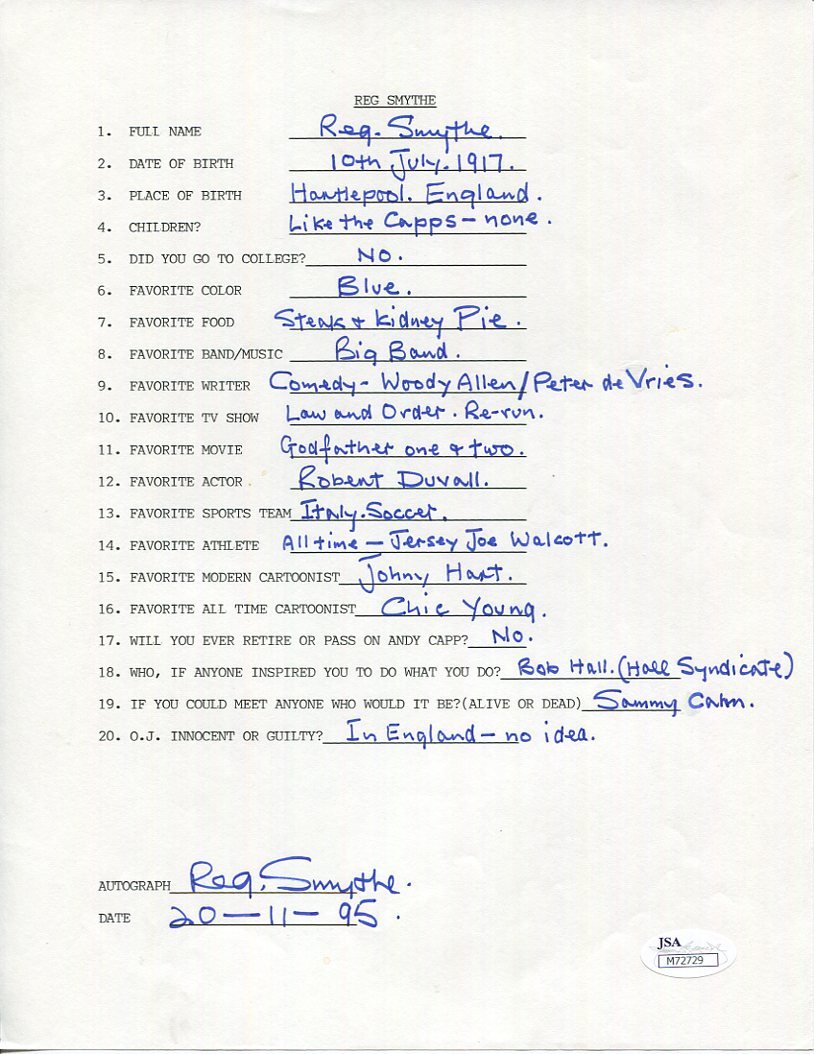 REG SMYTHE
1. FULL NAME Reg. Smythe.
2. DATE OF BIRTH 10th July. 1917.
3. PLACE OF BIRTH Hartlepool. England.
4. CHILDREN? Like the Capps - none.
5. DID YOU GO TO COLLEGE? No.
6. FAVORITE COLOR Blue.
7. FAVORITE FOOD Steak + Kidney Pie.
8. FAVORITE BAND/MUSIC Big Band.
9. FAVORITE WRITER Comedy - Woody Allen/Peter de Vries.
10. FAVORITE TV SHOW Law and Order. Re-run.
11. FAVORITE MOVIE Godfather one + two.
12. FAVORITE ACTOR Robert Duvall.
13. FAVORITE SPORTS TEAM Italy. Soccer.
14. FAVORITE ATHLETE All time - Jersey Joe Walcott.
15. FAVORITE MODERN CARTOONIST Johny Hart.
16. FAVORITE ALL TIME CARTOONIST Chic Young.
17. WILL YOU EVER RETIRE OR PASS ON ANDY CAPP? No.
18. WHO, IF ANYONE INSPIRED YOU TO DO WHAT YOU DO? Bob Hall. (Hall Syndicate)
19. IF YOU COULD MEET ANYONE WHO WOULD IT BE?(ALIVE OR DEAD) Sammy Cahn.
20. O.J. INNOCENT OR GUILTY? In England - no idea.
AUTOGRAPH Reg. Smythe.
DATE 20-11-95.
JSA
M72729